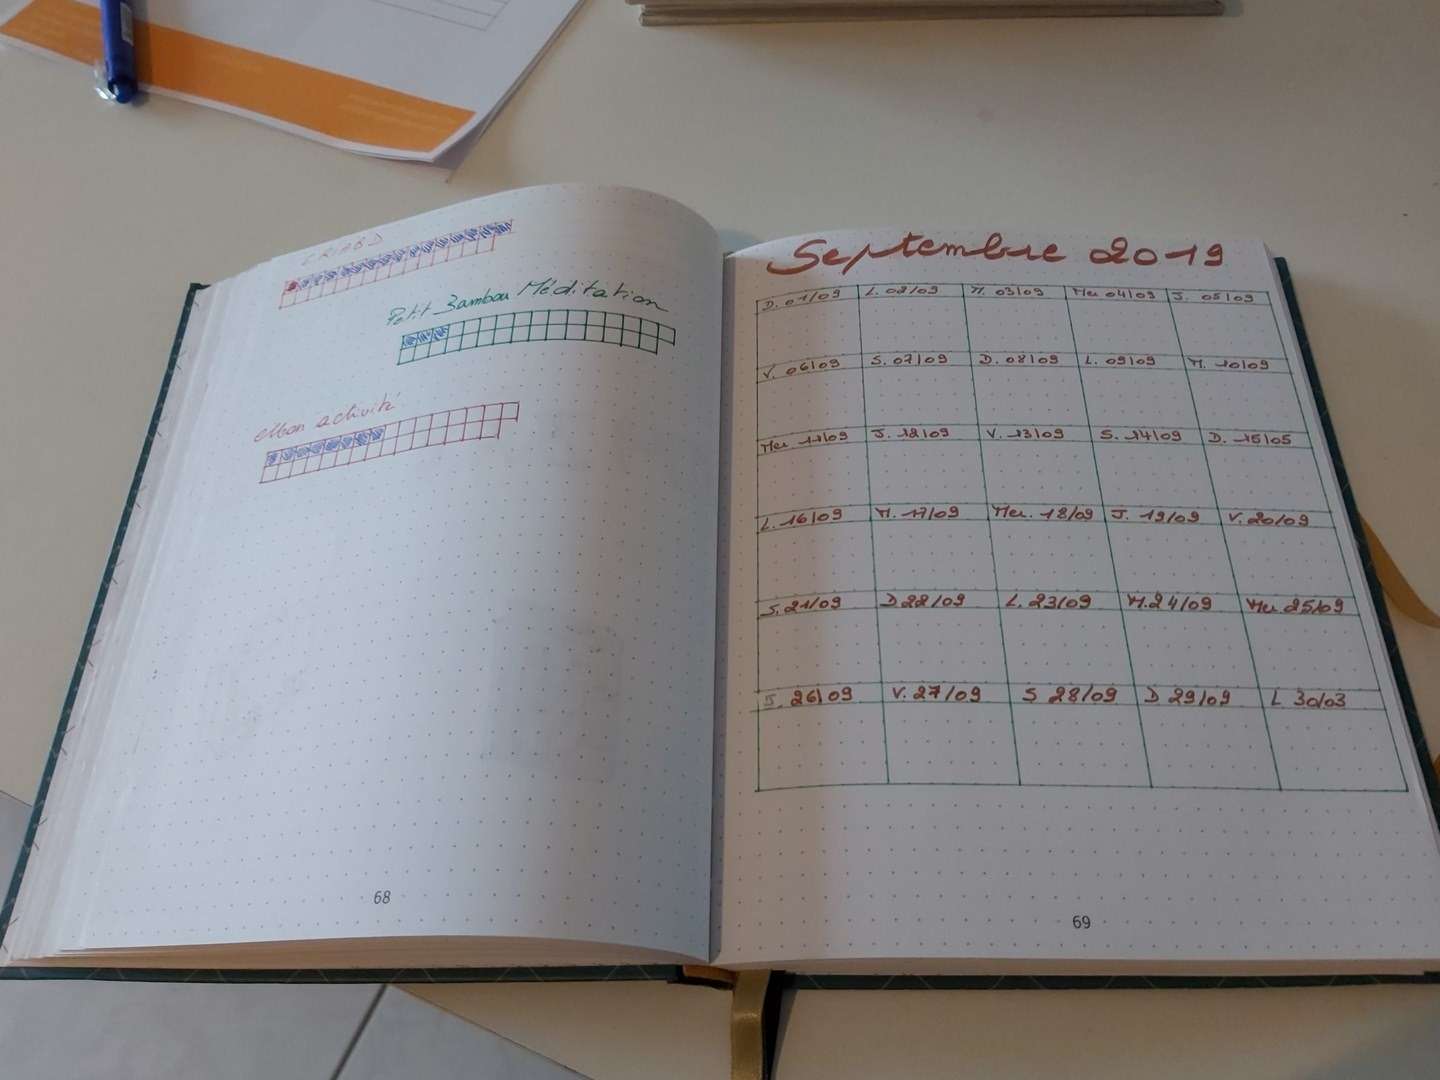 Petit Bambou Méditation
Mon activité
68
Septembre 2019
D. 01/09 L. 02/09 M. 03/09 Mer 04/09 J. 05/09
V. 06/09 S. 07/09 D. 08/09 L. 09/09 M. 10/09
Mer 11/09 J. 12/09 V. 13/09 S. 14/09 D. 15/05
L. 16/09 M. 17/09 Mer. 18/09 J. 19/09 V. 20/09
S. 21/09 D. 22/09 L. 23/09 M. 24/09 Mer. 25/09
J. 26/09 V. 27/09 S 28/09 D 29/09 L 30/03
69